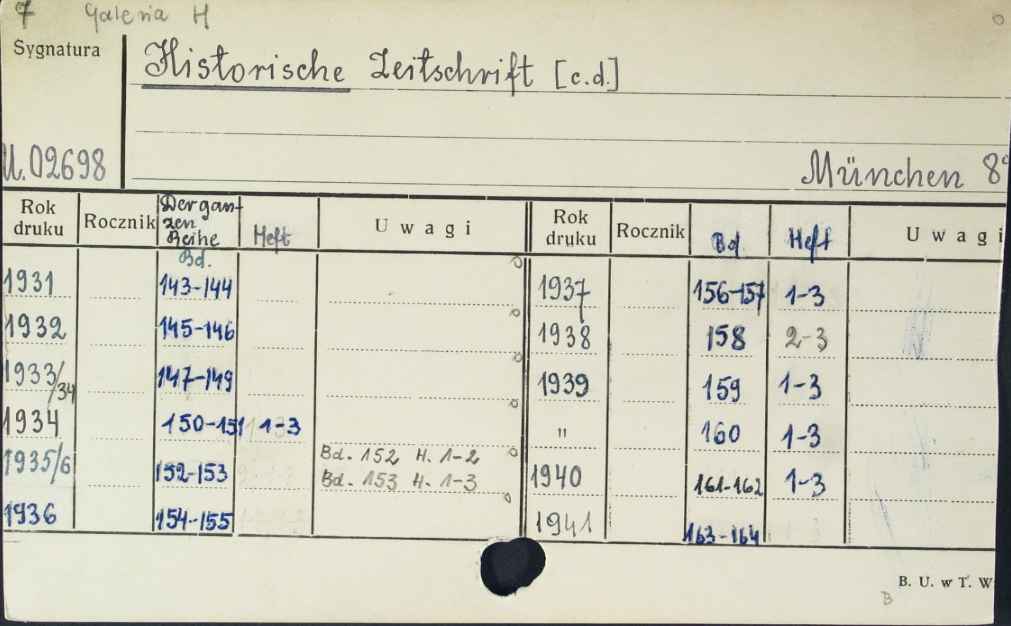 7 Galeria H
Sygnatura
Historische Zeitschrift [c.d.]
U.02698
München 8°
Rok druku Rocznik Der ganzen Reihe Bd. Heft Uwagi Rok druku Rocznik Bd Heft Uwagi
1931 143-144 1937 156-157 1-3
1932 145-146 1938 158 2-3
1933/34 147-149 1939 159 1-3
1934 150-151 1-3 " 160 1-3
1935/6 152-153 Bd. 152 H. 1-2 1940 161-162 1-3
Bd. 153 H. 1-3
1936 154-155 1941 163-164
B. U. w T. W
B